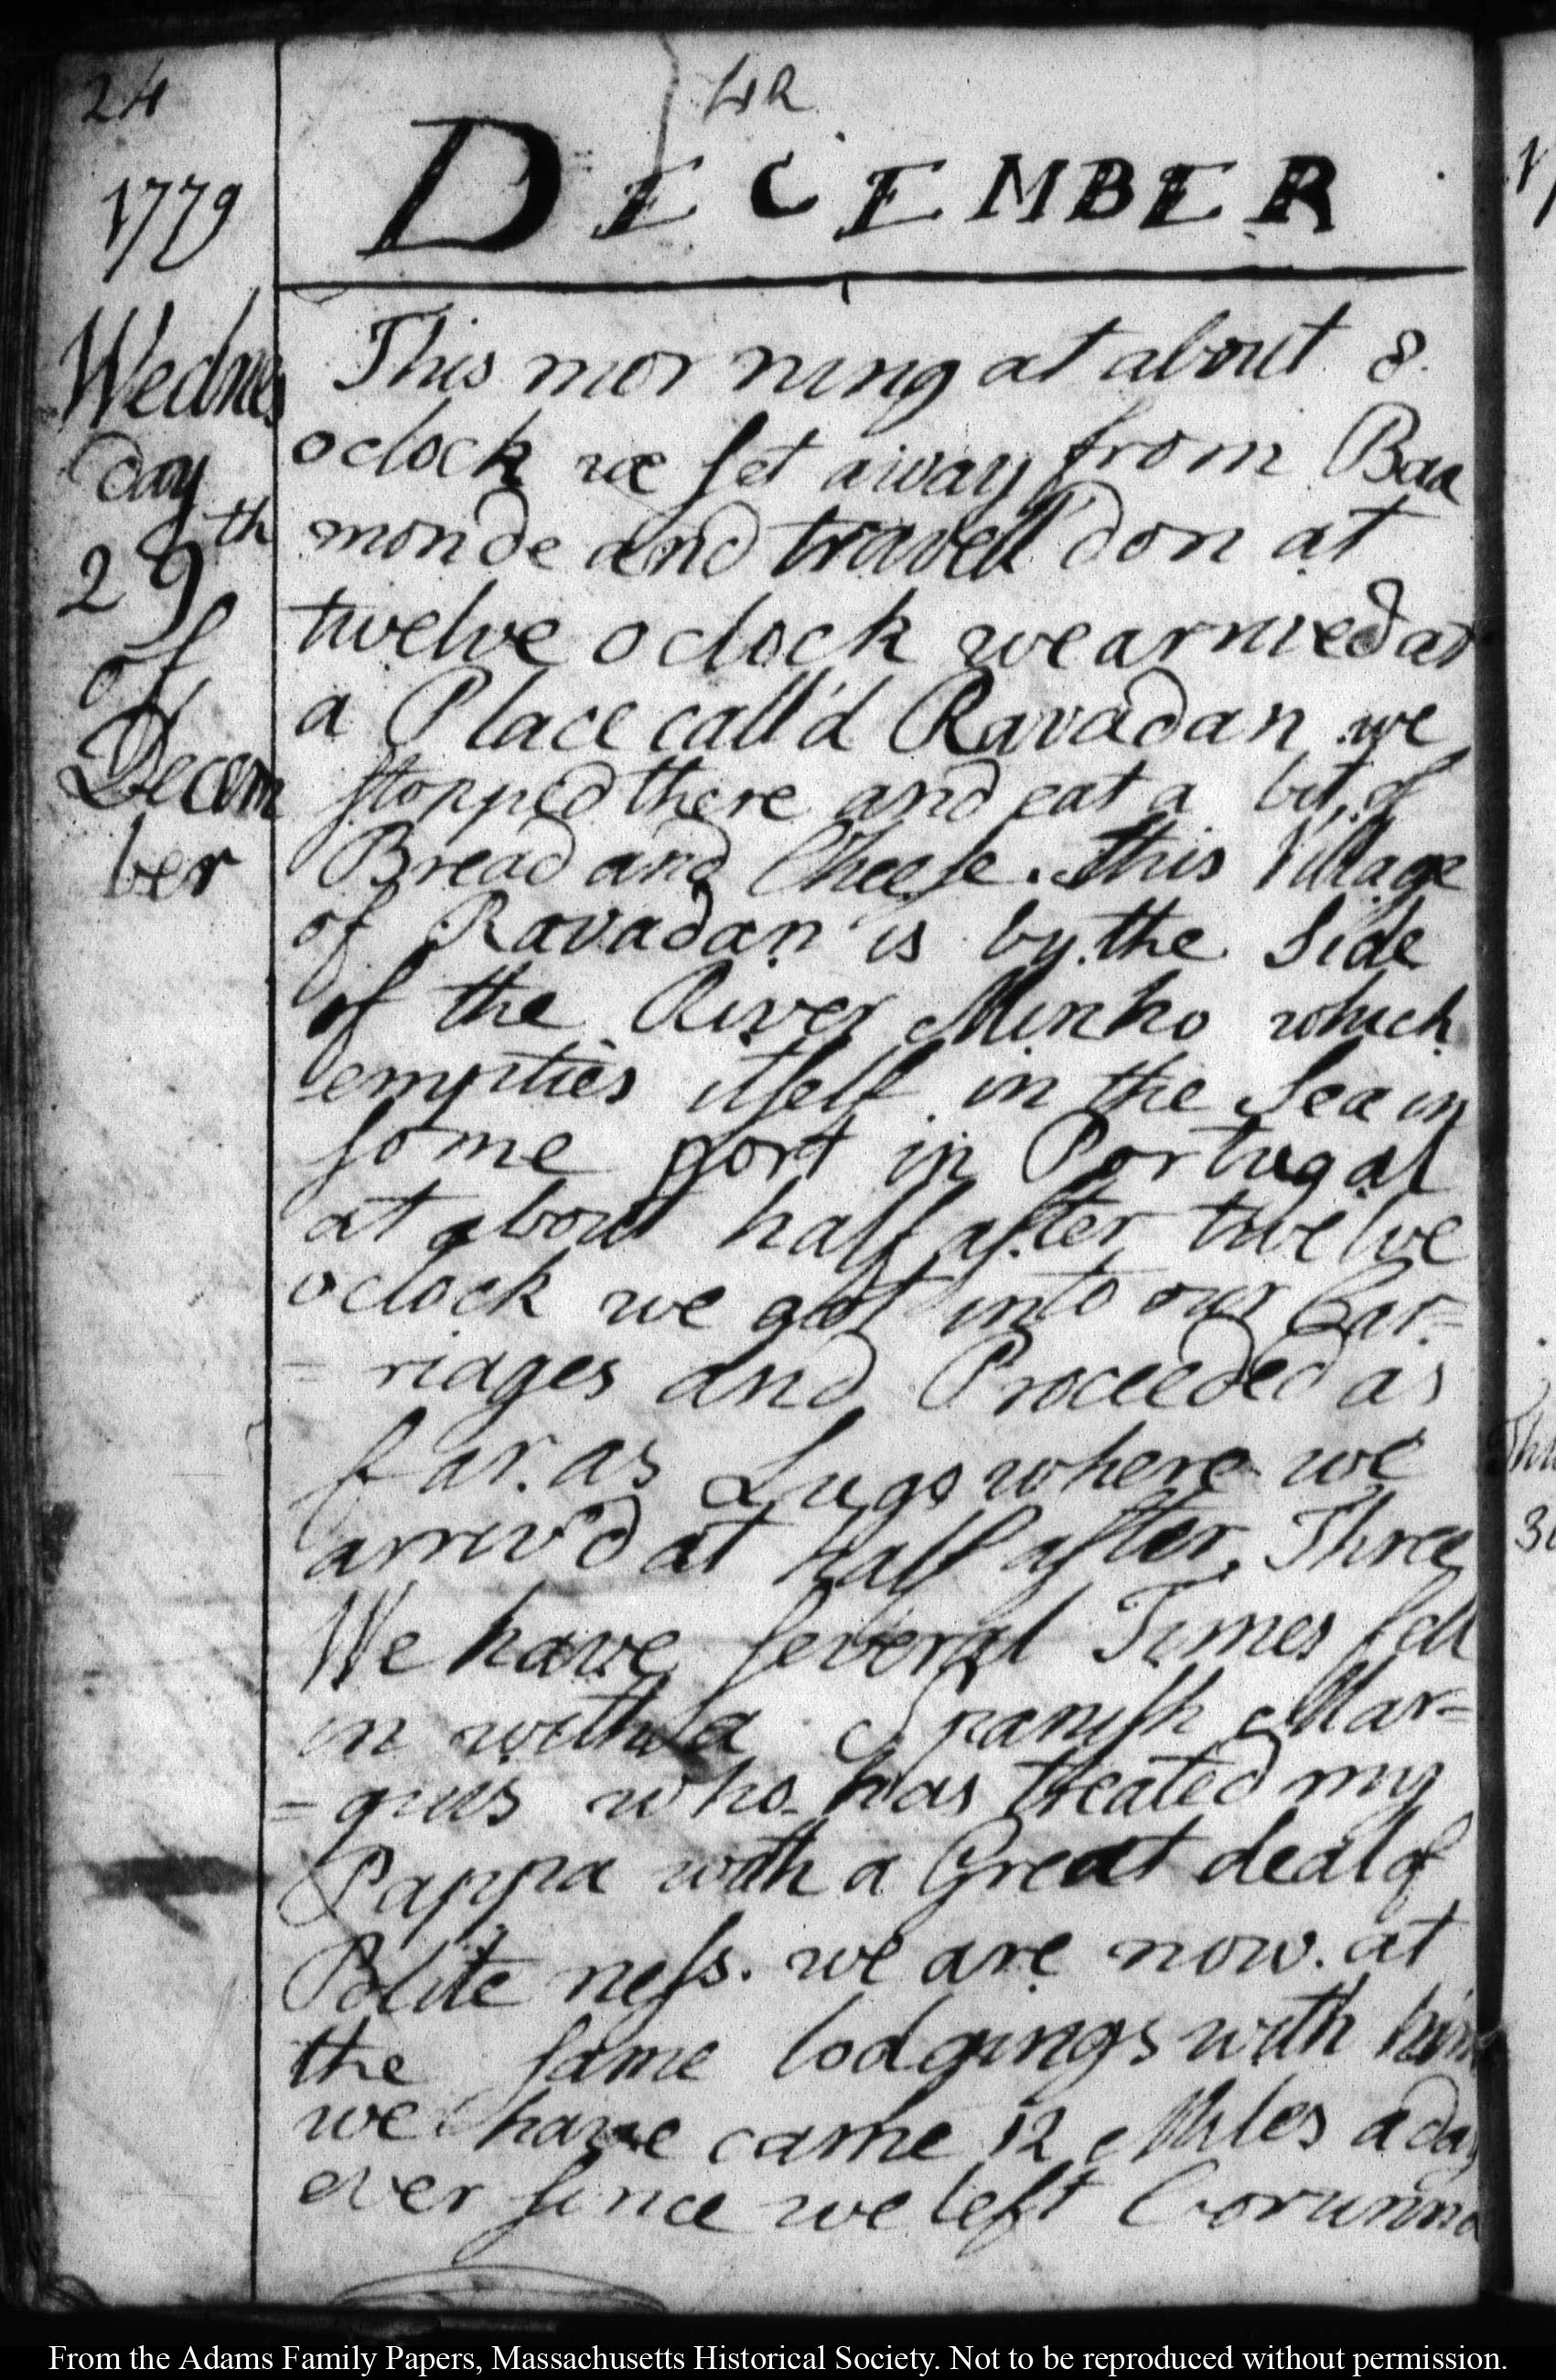 24
1779
Wednes
day
29th
of
Decem
ber
DECEMBER
This morning at about 8
oclock we set away from Baa
monde and travell'd on at
twelve o clock we arrived at
a Place call'd Ravadan we
stopped there and eat a bit of
Bread and Cheese. this Village
of Ravadan is by the Side
of the River Minho which
empties itself in the Sea in
some port in Portugal
at about half after twelve
oclock we got into our Car=
=riages and Proceeded as
far as Lugo where we
arriv'd at half after Three
We have several Times fell
in with a Spanish Mar=
=quis who has treated my
Pappa with a Great deal of
Polite ness. we are now at
the same lodgings with him
we have came 12 Miles a day
ever since we left Corunna
From the Adams Family Papers, Massachusetts Historical Society. Not to be reproduced without permission.